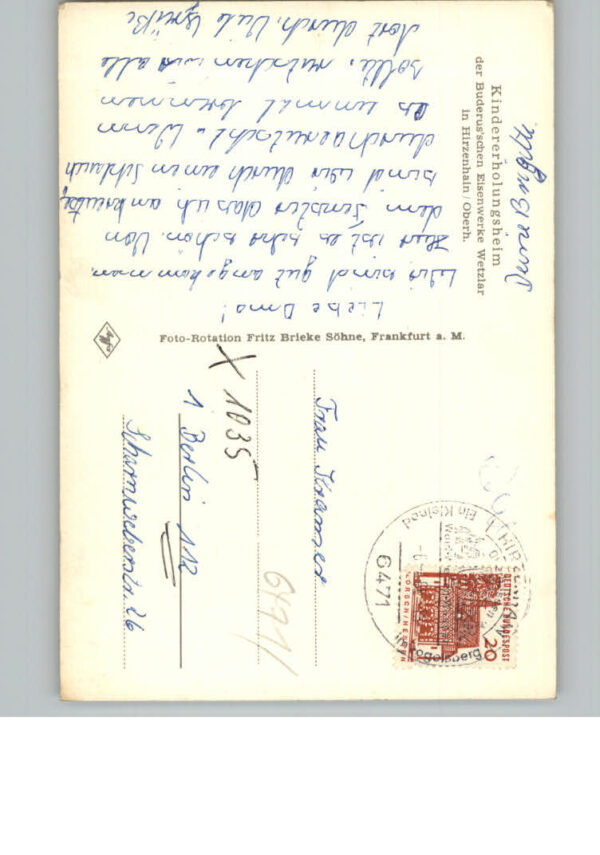 Kindererholungsheim
der Buderus'schen Eisenwerke Wetzlar
in Hirzenhain/Oberh.
Liebe Oma!
Wir sind gut angekommen.
Hier ist es sehr schön. Von
dem Fenster das ich ankreuzte
sind wir durch einen Schlauch
durchgerutscht. Wenn
es einmal brennen
sollte, rutschen wir alle
dort durch. Viele Grüße
Foto-Rotation Fritz Brieke Söhne, Frankfurt a. M.
Agfa
Frau Kramer
X 1035
1 Berlin 112
Scharnweberstr. 26
6471
6471
HIRZENHAIN
Ein Kleinod
im Vogelsberg
DEUTSCHE BUNDESPOST
20
LORSCH/HESSEN